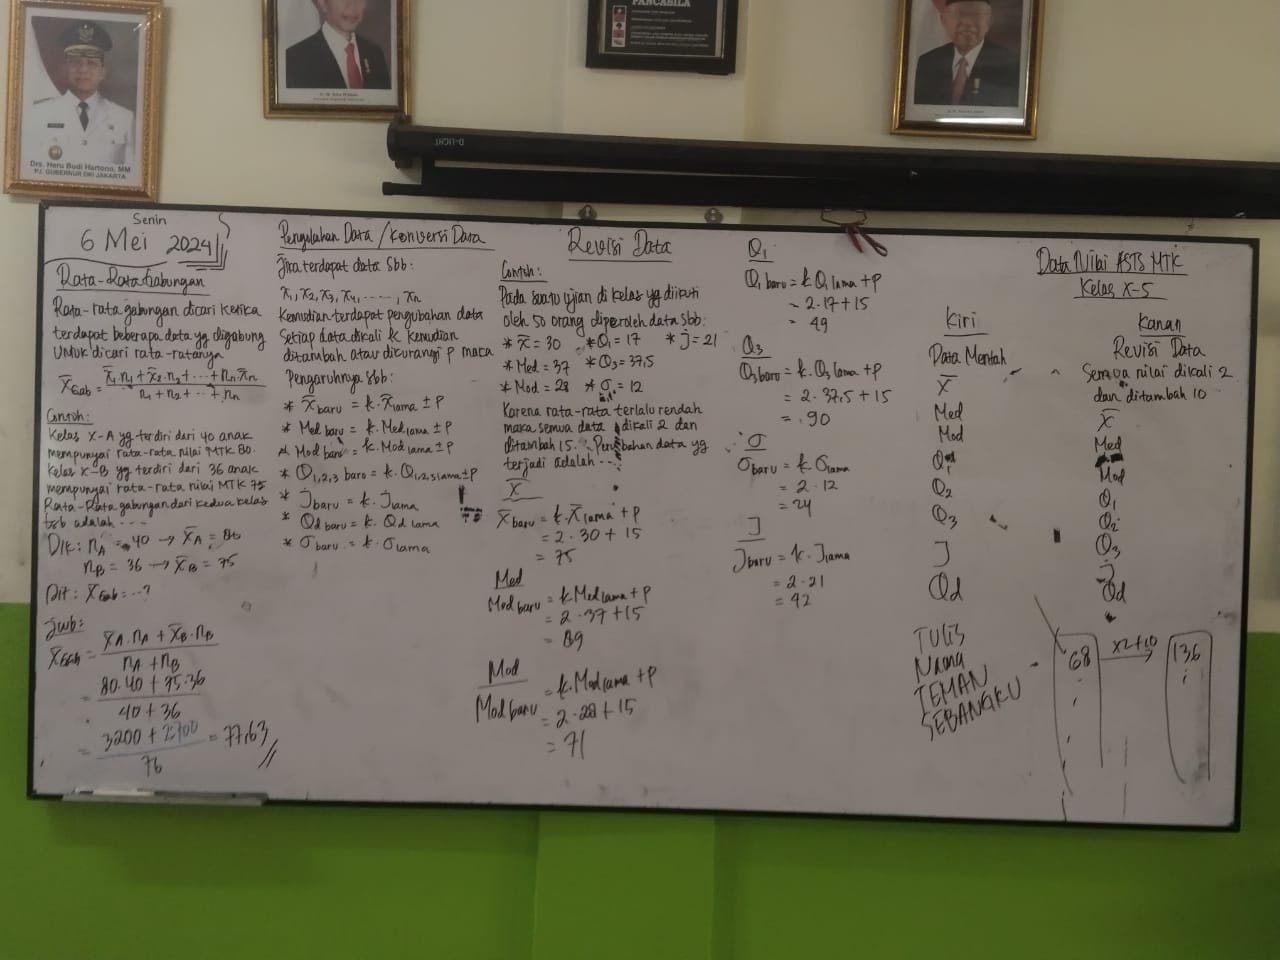 Drs. Heru Budi Hartono, MM
PJ. GUBERNUR DKI JAKARTA
PANCASILA
D-LIGHT
Senin
6 Mei 2024
Rata-Rata Gabungan
Rata-rata gabungan dicari ketika
terdapat beberapa data yg digabung
untuk dicari rata-ratanya
x̄Gab = x̄1.n1 + x̄2.n2 + ... + nn.x̄n
n1 + n2 + ... + nn
Contoh:
Kelas X-A yg terdiri dari 40 anak
mempunyai rata-rata nilai MTK 80.
Kelas X-B yg terdiri dari 36 anak
mempunyai rata-rata nilai MTK 75
Rata-Rata gabungan dari kedua kelas
tsb adalah ....
Dik: nA = 40 → x̄A = 80
nB = 36 → x̄B = 75
Dit: x̄Gab = ...?
Jwb:
x̄Gab = x̄A.nA + x̄B.nB
nA + nB
= 80.40 + 75.36
40 + 36
= 3200 + 2700 = 77,63
76
Pengolahan Data / Konversi Data
Jika terdapat data sbb:
x1, x2, x3, x4, ......, xn
Kemudian terdapat pengubahan data
Setiap data dikali k kemudian
ditambah atau dikurangi p maka
Pengaruhnya sbb:
* x̄baru = k.x̄lama ± p
* Med baru = k.Med lama ± p
* Mod baru = k.Mod lama ± p
* Q1,2,3 baru = k.Q1,2,3 lama ± p
* Jbaru = k.Jlama
* Qd baru = k.Qd lama
* σbaru = k.σlama
Revisi Data
Contoh:
Pada suatu ujian di kelas yg diikuti
oleh 50 orang diperoleh data sbb:
* x̄ = 30 * Q1 = 17 * J = 21
* Med = 37 * Q3 = 37,5
* Mod = 28 * σ = 12
Karena rata-rata terlalu rendah
maka semua data dikali 2 dan
ditambah 15. Perubahan data yg
terjadi adalah ...
x̄
x̄baru = k.x̄lama + p
= 2.30 + 15
= 75
Med
Med baru = k.Med lama + p
= 2.37 + 15
= 89
Mod
Mod baru = k.Mod lama + p
= 2.28 + 15
= 71
Q1
Q1 baru = k.Q1 lama + p
= 2.17 + 15
= 49
Q3
Q3 baru = k.Q3 lama + p
= 2.37,5 + 15
= 90
σ
σbaru = k.σlama
= 2.12
= 24
J
Jbaru = k.Jlama
= 2.21
= 42
Data Nilai ASTS MTK
Kelas X-5
Kiri
Data Mentah
x̄
Med
Mod
Q1
Q2
Q3
J
Qd
Kanan
Revisi Data
Semua nilai dikali 2
dan ditambah 10
x̄
Med
Mod
Q1
Q2
Q3
J
Qd
TULIS
Nama
TEMAN
SEBANGKU
68 x2+10 → 136